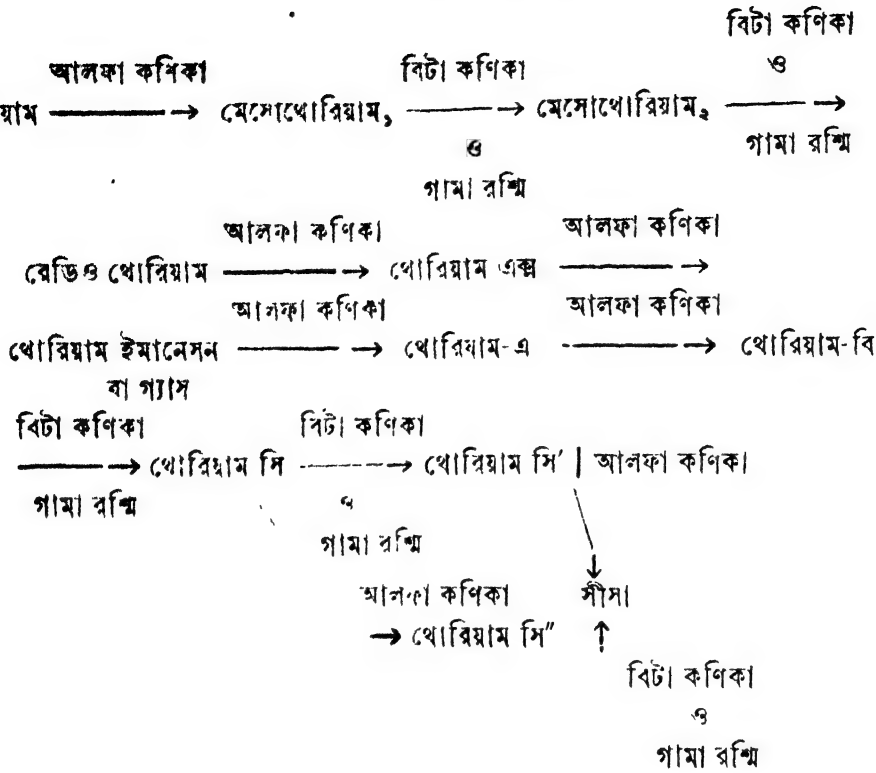 বিটা কণিকা
আলফা কণিকা বিটা কণিকা ও
য়াম ⟶ মেসোথোরিয়াম১ ⟶ মেসোথোরিয়াম২ ⟶
ও গামা রশ্মি
গামা রশ্মি
আলফা কণিকা আলফা কণিকা
রেডিও থোরিয়াম ⟶ থোরিয়াম এক্স ⟶
আলফা কণিকা আলফা কণিকা
থোরিয়াম ইমানেসন ⟶ থোরিয়াম-এ ⟶ থোরিয়াম-বি
বা গ্যাস
বিটা কণিকা বিটা কণিকা
⟶ থোরিয়াম সি ⟶ থোরিয়াম সি′ | আলফা কণিকা
গামা রশ্মি ও
গামা রশ্মি ↓
আলফা কণিকা সীসা
→ থোরিয়াম সি″ ↑
বিটা কণিকা
ও
গামা রশ্মি